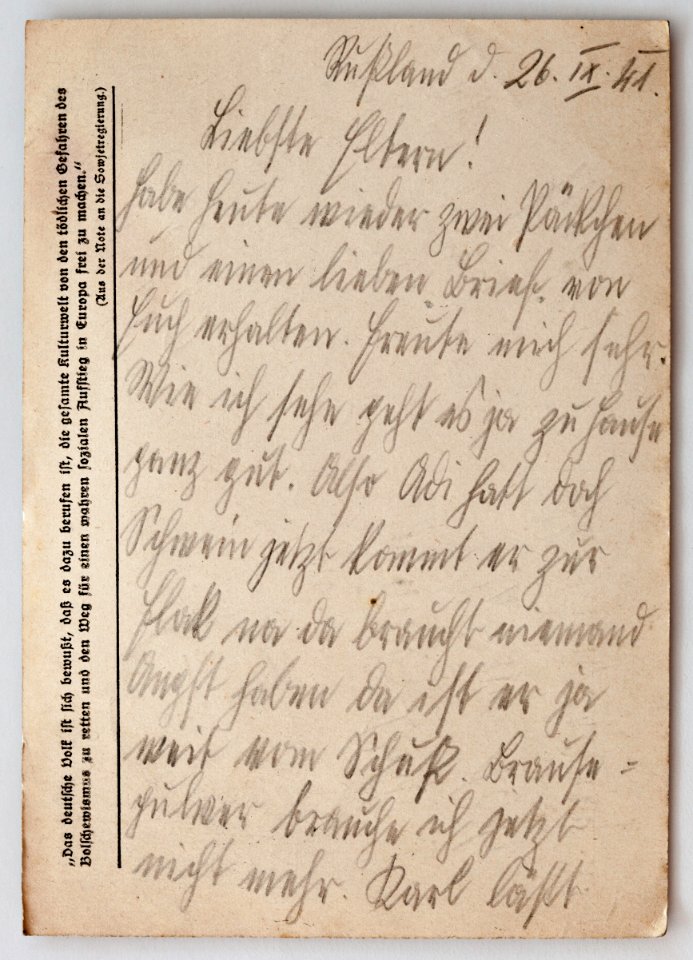 Rußland d. 26. IX. 41.
Liebste Eltern!
Habe heute wieder zwei Päckchen
und einen lieben Brief von
Euch erhalten. Freute mich sehr.
Wie ich sehe geht es ja zu Hause
ganz gut. Also Adi hatt doch
Schwein jetzt kommt er zur
Flak na da braucht niemand
Angst haben da ist er ja
weit vom Schuß. Brause=
pulver brauche ich jetzt
nicht mehr. Karl läßt
„Das deutsche Volk ist sich bewußt, daß es dazu berufen ist, die gesamte Kulturwelt von den tödlichen Gefahren des
Bolschewismus zu retten und den Weg für einen wahren sozialen Aufstieg in Europa frei zu machen.“
(Aus der Note an die Sowjetregierung.)